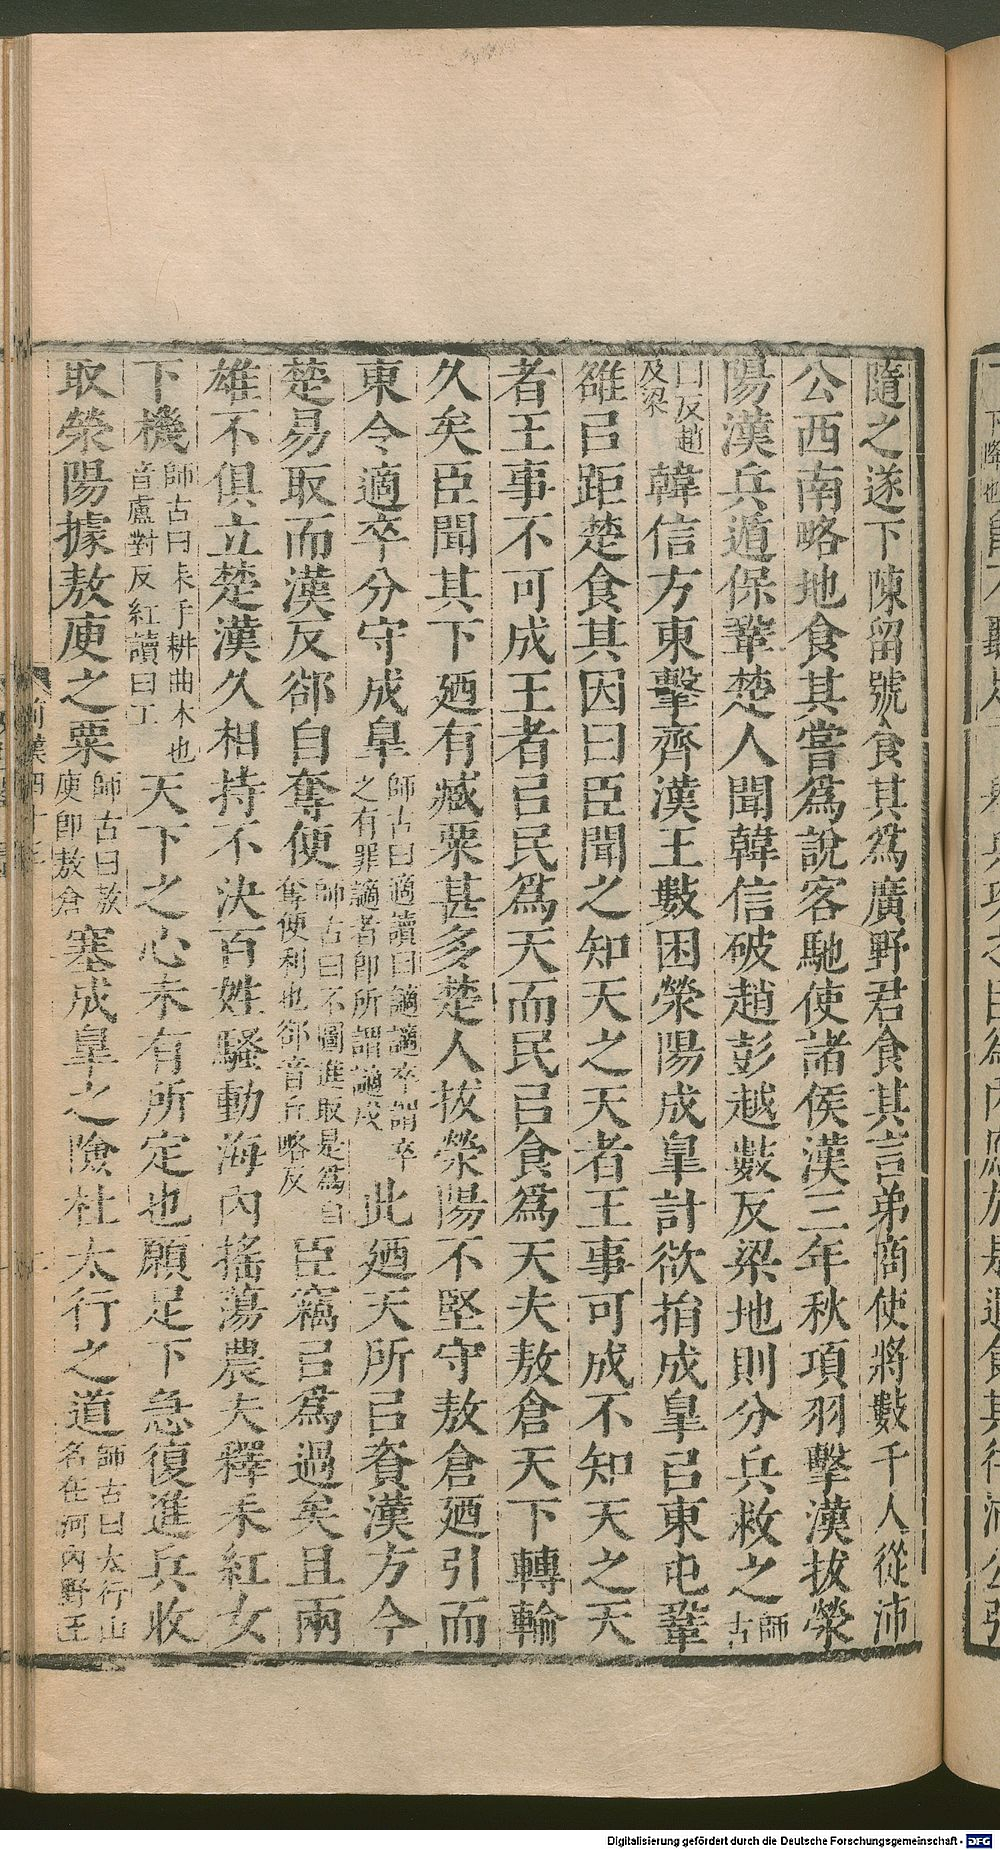 隨之遂下陳留號食其爲廣野君食其言弟商使將數千人從沛
公西南略地食其嘗爲說客馳使諸侯漢三年秋項羽擊漢拔滎
陽漢兵遁保鞏楚人聞韓信破趙彭越數反梁地則分兵救之師古
曰反趙及梁韓信方東擊齊漢王數困滎陽成皐計欲捐成皐㠯東屯鞏
雒㠯距楚食其因曰臣聞之知天之天者王事可成不知天之天
者王事不可成王者㠯民爲天而民㠯食爲天夫敖倉天下轉輸
久矣臣聞其下廼有臧粟甚多楚人拔滎陽不堅守敖倉廼引而
東令適卒分守成皐師古曰適讀曰謫謫卒謂卒之有罪謫者卽所謂謫戍此廼天所㠯資漢方今
楚易取而漢反郤自奪便師古曰不圖進取是爲自奪便利也郤音丘略反臣竊㠯爲過矣且兩
雄不俱立楚漢久相持不決百姓騷動海內搖蕩農夫釋耒紅女
下機師古曰耒手耕曲木也音盧對反紅讀曰工天下之心未有所定也願足下急復進兵收
取滎陽據敖庾之粟師古曰敖庾卽敖倉塞成皐之險杜太行之道師古曰太行山名在河內野王
前漢四十三
Digitalisierung gefördert durch die Deutsche Forschungsgemeinschaft - DFG